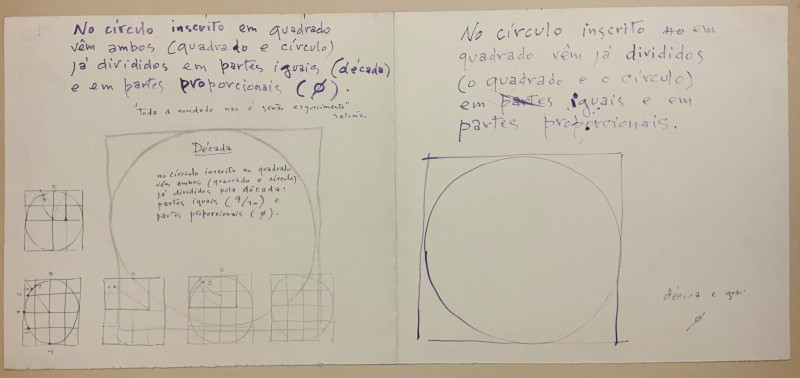 No círculo inscrito em quadrado
vêm ambos (quadrado e círculo)
já divididos em partes iguais (década)
e em partes proporcionais (ϕ).
"toda a novidade nao é senão esquecimento"
salomão.
Década
no círculo inscrito no quadrado
vêm ambos (quadrado e círculo)
já divididos pela década:
partes iguais (9/10) e
partes proporcionais (ϕ).
No círculo inscrito em
quadrado vêm já divididos
(o quadrado e o círculo)
em partes iguais e em
partes proporcionais.
década e
ϕ